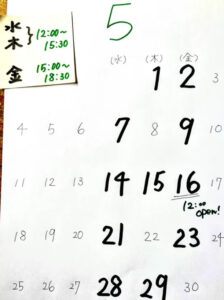 水
木 } 12:00~
15:30
金 15:00~
18:30
5
(水) (木) (金)
1 2 3
4 5 6 7 8 9 10
11 12 13 14 15 16 17
12:00
open!
18 19 20 21 22 23 24
25 26 27 28 29 30